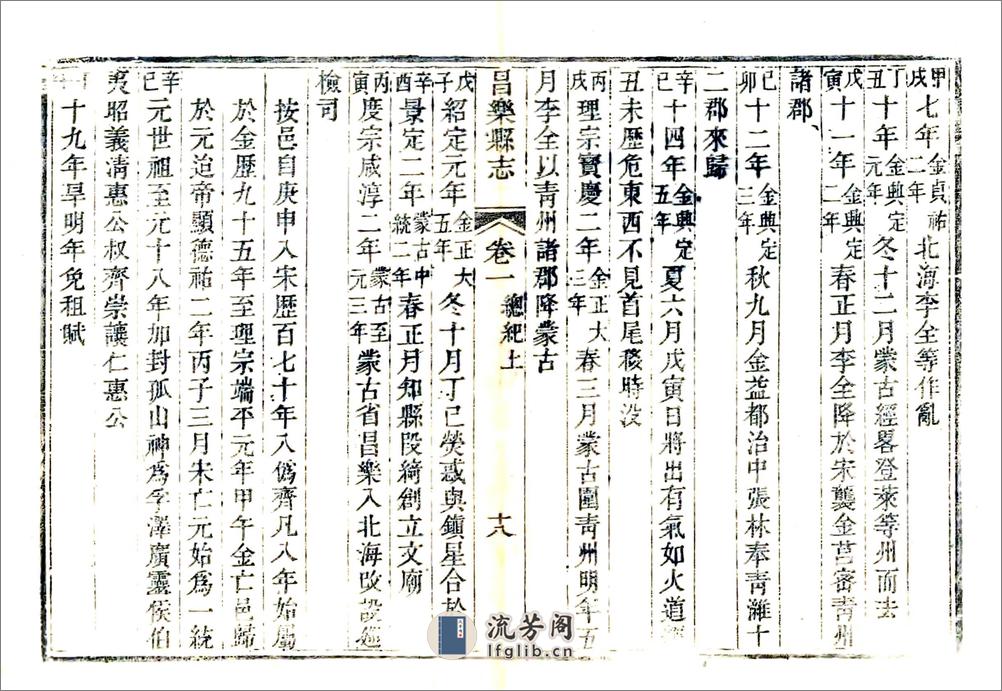 甲戌七年金貞祐二年北海李全等作亂
丁丑十年金興定元年冬十二月蒙古經畧登萊等州而去
戊寅十一年金興定二年春正月李全降於宋襲金莒密青州
諸郡、
己卯十二年金興定三年秋九月金益都治中張林奉青濰十
二郡來歸
辛巳十四年金興定五年夏六月戊寅日將出有氣如火道
丑未歷危東西不見首尾移時没
丙戌理宗寶慶二年金正大三年春三月蒙古圍青州明年五
月李全以青州諸郡降蒙古
昌樂縣志 卷一 總紀上 十八
戊子紹定元年金正大五年冬十月丁巳熒惑與鎮星合於
辛酉景定二年蒙古中統二年春正月知縣段綺創立文廟
丙寅度宗咸淳二年蒙古至元三年蒙古省昌樂入北海改設巡
檢司
按邑自庚申入宋歷百七十年入僞齊凡八年始屬
於金歷九十五年至理宗端平元年甲午金亡邑歸
於元迨帝㬎德祐二年丙子三月宋亡元始爲一統
辛巳元世祖至元十八年加封孤山神爲孚澤廣靈侯伯
夷昭義清惠公叔齊崇讓仁惠公
十九年旱明年免租賦
流芳阁
lfglib.cn